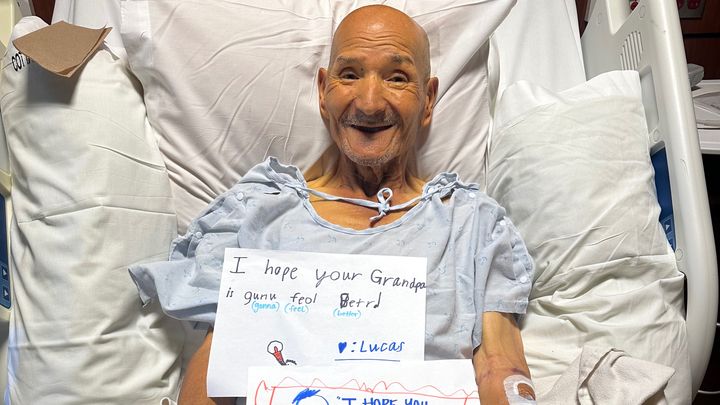 I hope your Grandpa
is gunu feol Betrd
(gonna) (feel) (better)
♥:Lucas
"I HOPE YOU